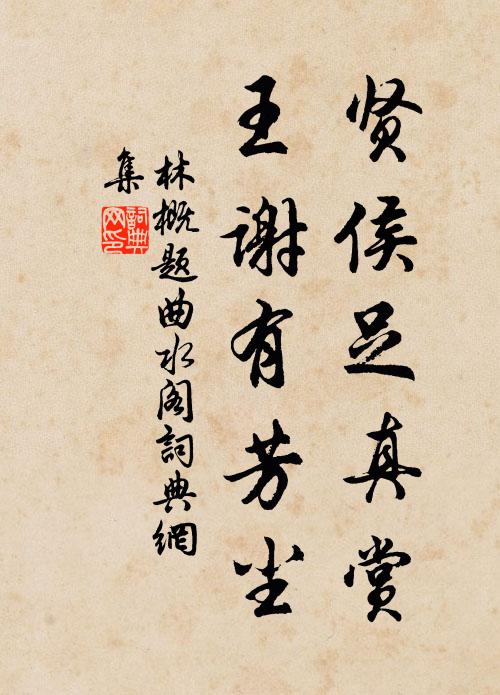 贤侯足真赏
王谢有芳尘
林概题曲水阁詞典網
集
詞典
网印